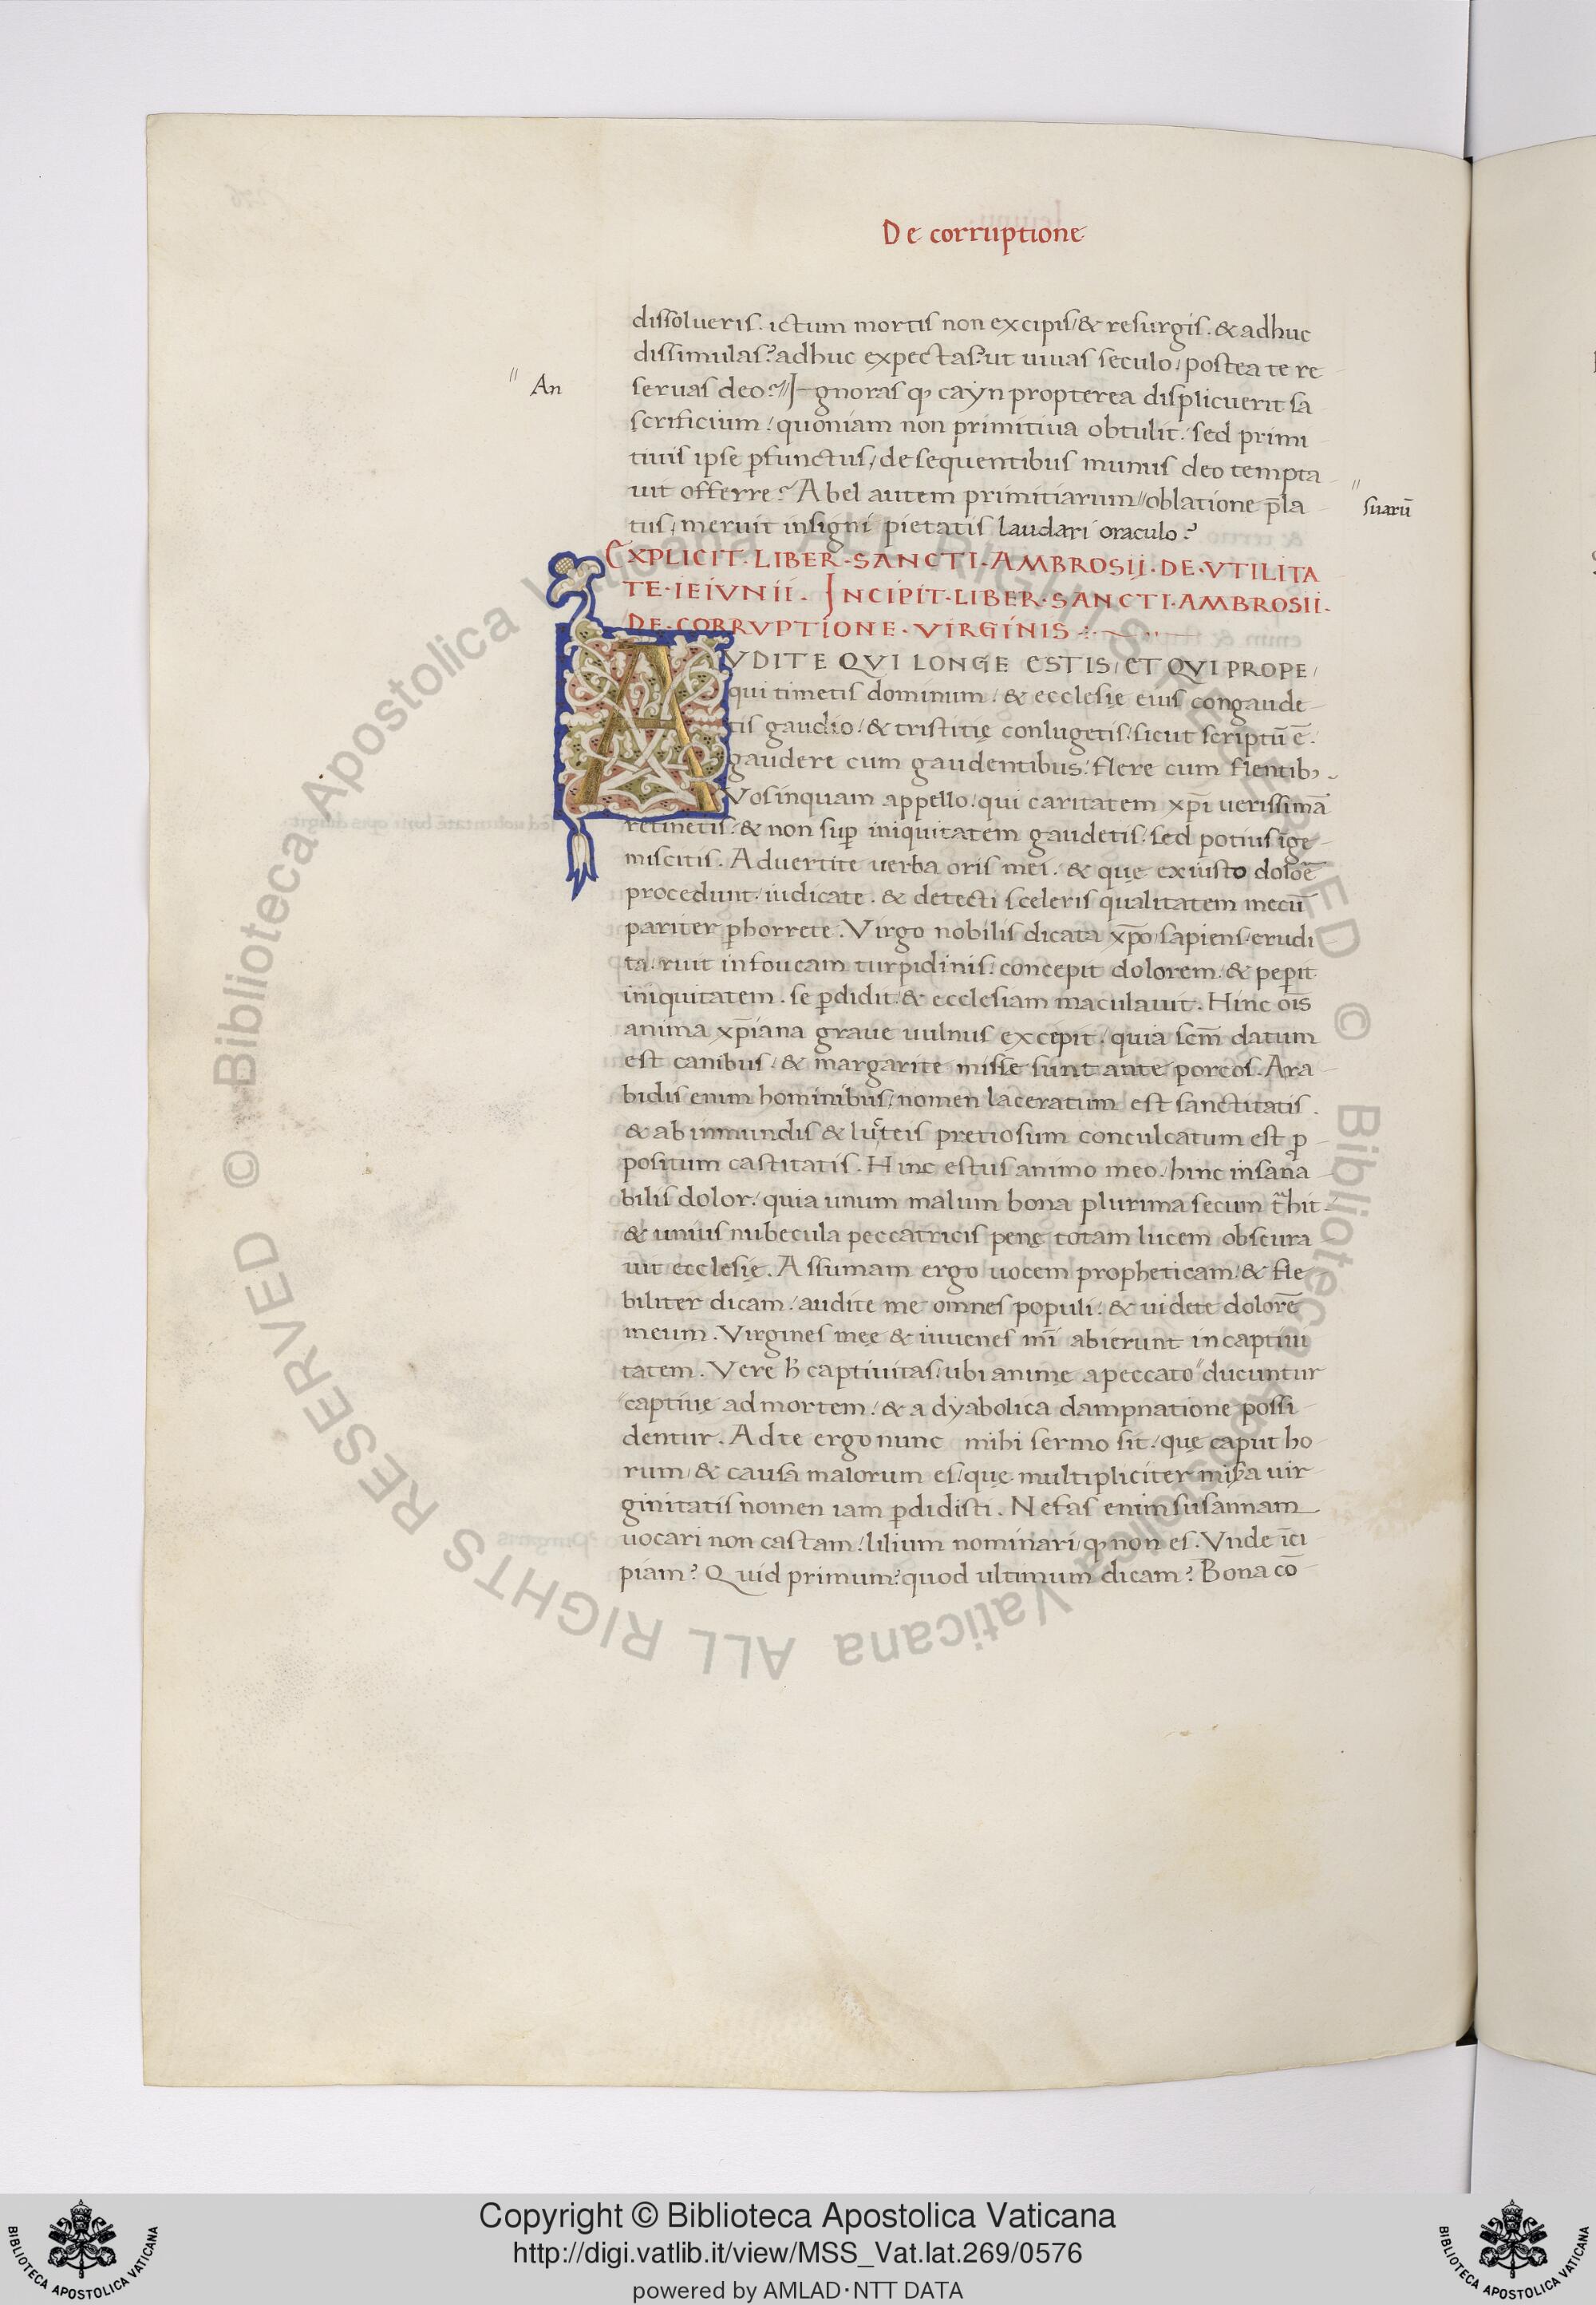 De corruptione
dissolueris. ictum mortis non excipis/ & resurgis. & adhuc
dissimulas? adhuc expectas? ut uiuas seculo/ postea te re
An
seruas deo?// Ignoras qꝫ cayn propterea displicuerit sa
scrificium/ quoniam non primitiua obtulit/ sed primi
tiuis ipse ꝑfunctus/ de sequentibus munus deo tempta
uit offerre? Abel autem primitiarum // oblatione p̄la
suarū
tus/ meruit insigni pietatis laudari oraculo?
EXPLICIT·LIBER·SANCTI·AMBROSIJ·DE·VTILITA
TE·IEIVNII. INCIPIT·LIBER·SANCTI·AMBROSII.
DE·CORRVPTIONE·VIRGINIS
AVDITE QVI LONGE ESTIS/ ET QVI PROPE/
qui timetis dominum/ & ecclesię eius congaude
tis gaudio/ & tristitię conlugetis/ sicut scriptū ē/
gaudere cum gaudentibus/ flere cum flentibꝫ.
Vos inquam appello/ qui caritatem xp̄i uerissimā
retinetis/ & non suꝑ iniquitatem gaudetis/ sed potius īge
miscitis. Aduertite uerba oris mei. & quę ex iusto doloē
procedunt/ iudicate. & detecti sceleris qualitatem mecū
pariter ꝑhorrete. Virgo nobilis dicata xp̄o/ sapiens/ erudi
ta/ ruit in foueam turpidinis/ concepit dolorem/ & peꝑit
iniquitatem. se ꝑdidit/ & ecclesiam maculauit. Hinc oīs
anima xp̄iana graue uulnus excepit/ quia scm̄ datum
est canibus/ & margarite misse sunt ante porcos. A ra
bidis enim hominibus/ nomen laceratum est sanctitatis.
& ab inmundis & luteis pretiosum conculcatum est ꝓ
positum castitatis. Hinc estus animo meo/ hinc insana
bilis dolor/ quia unum malum bona plurima secum t̄hit
& unius nubecula peccatricis penę totam lucem obscura
uit ecclesię. Assumam ergo uocem propheticam/ & fle
biliter dicam/ audite me omnes populi/ & uidete dolorē
meum. Virgines meę & iuuenes mī abierunt in captiui
tatem. Vere h̄ captiuitas/ ubi animę a peccato // ducuntur
captiuę ad mortem/ & a dyabolica dampnatione possi
dentur. Ad te ergo nunc mihi sermo sit/ quę caput ho
rum/ & causa malorum es/ quę multipliciter misa uir
ginitatis nomen iam ꝑdidisti. Nefas enim susannam
uocari non castam/ lilium nominari/ qꝫ non es. Vnde īci
piam? Quid primum? quod ultimum dicam? Bona cō
© Biblioteca Apostolica Vaticana ALL RIGHTS RESERVED © Biblioteca Apostolica Vaticana ALL RIGHTS RESERVED
Copyright © Biblioteca Apostolica Vaticana
http://digi.vatlib.it/view/MSS_Vat.lat.269/0576
powered by AMLAD·NTT DATA
BIBLIOTECA APOSTOLICA VATICANA
BIBLIOTECA APOSTOLICA VATICANA